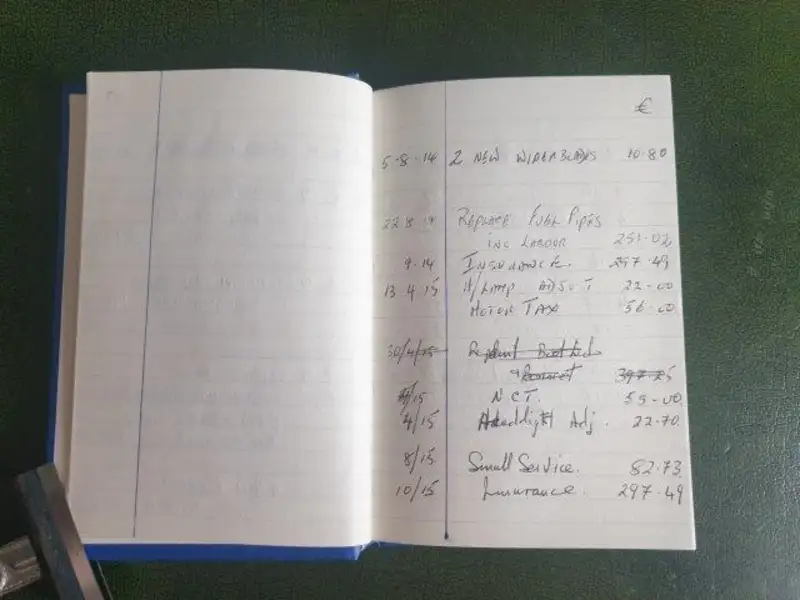 €
5-8-14 2 NEW WIPERBLADES 10.80
22 8 14 REPLACE FUEL PIPES
INC LABOUR
9.14 INSURANCE. 297.49
13 4 15 H/LAMP ADJST 22-00
MOTOR TAX 56-00
30/4/15
397.25
/15 N C T. 55-00
4/15 Headlight Adj. 22.70
8/15 Small Service. 82.73
10/15 Insurance. 297.49